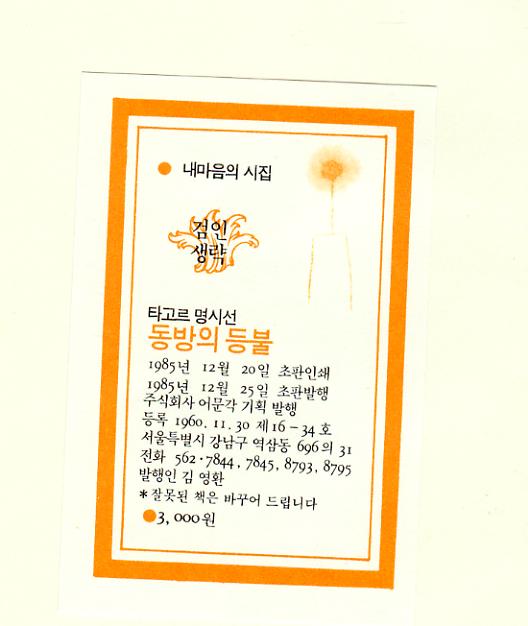 ● 내마음의 시집
검인
생략
타고르 명시선
동방의 등불
1985년 12월 20일 초판인쇄
1985년 12월 25일 초판발행
주식회사 어문각 기획 발행
등록 1960. 11. 30 제16-34호
서울특별시 강남구 역삼동 696의 31
전화 562·7844, 7845, 8793, 8795
발행인 김 영환
*잘못된 책은 바꾸어 드립니다
●3,000원